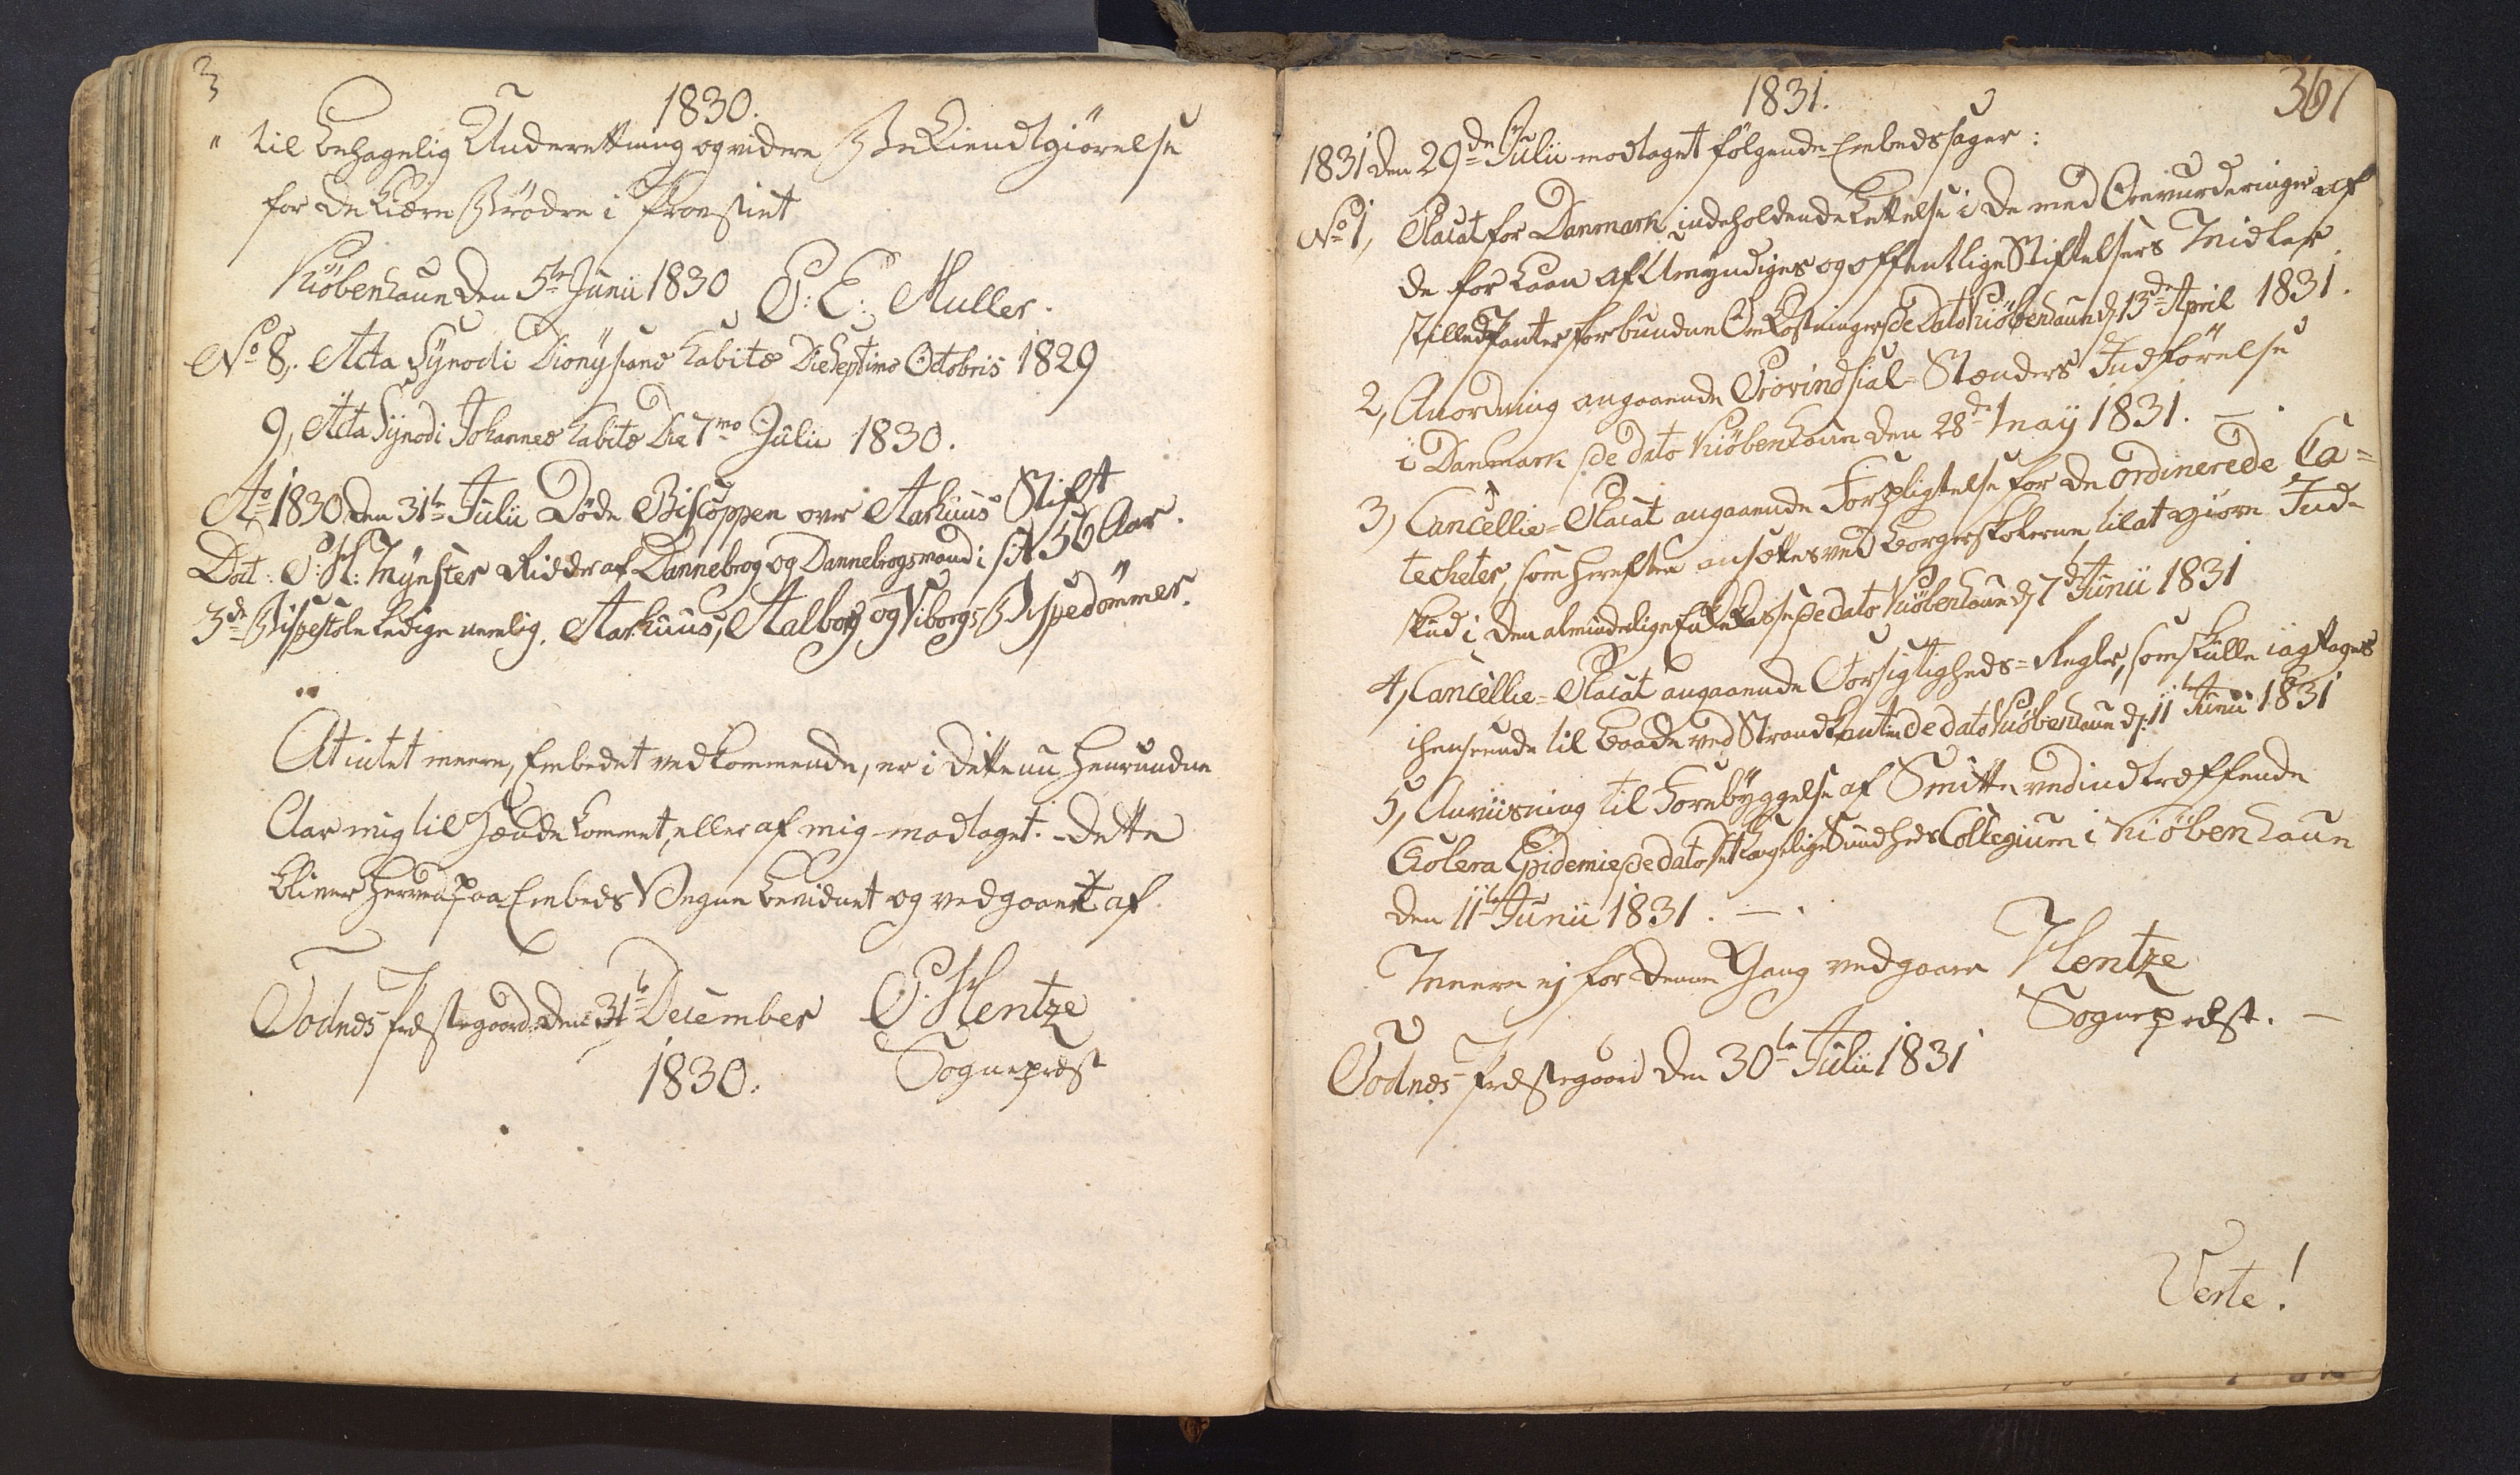 3
1830.
" til behagelig Underretning og videre Bekiendtgiörelse
for de kiære Brödre i Provstiet
Kiöbenhavn den 5te Junii 1830 P: E: Muller.
No 8,. Acta Synodi Dionysianæ habitæ Die septimo Octobris 1829
9, Acta Synodi Johanneæ habitæ Die 7mo Julii 1830.
Ao 1830 den 31te Julii Döde Biscoppen over Aarhuus Stift
Doct: P: H: Mynster Ridder af Dannebrog og Dannebrogsmand i sit 56 Aar.
3de Bispestole ledige nemlig, Aarhuus, Aalborg og Viborgs Bispedömmer.
At intet meere, Embedet vedkommende, er i dette nu henrundne
Aar mig til Hænde kommet, eller af mig modtaget. - Dette
bliver herved paa Embeds Vegne bevidnet og vedgaaet af
Todnes Præstegaard den 31te December P. Hentze
1830. Sognepræst
361
1831.
1831 den 29de Julii modtaget fölgende Embedssager:
No 1, Placat for Danmark, indeholdende Lettelse i de med Omvurderinger af
de for Laan af Umyndiges og offentlige Stiftelsers Midler
stillede Panter forbundne Omkostninger de dato Kiöbenhavn d. 13de April 1831.
2, Anordning angaaende Provindsial-Stænders Indförelse
i Danmark de dato Kiöbenhavn den 28de May 1831. —.
3, Cancellie-Placat angaaende Forpligtelse for de ordinerede Ca=
techeter, som herefter ansættes ved Borgerskolerne, til at giöre Ind-
skud i den almindelige Enkekasse de dato Kiöbenhavn d. 7de Junii 1831
4, Cancellie-Placat angaaende Forsigtigheds-Regler, som skulle iagttages
i henseende til Baade ved Strandkanten de dato Kiöbenhavn d. 11te Junii 1831
5, Anviisning til Forebyggelse af Smitte ved indtræffende
Cholera Epidemie de dato det kongelige Sundheds Collegium i Kiöbenhavn
den 11te Junii 1831. —.
Meere ej for denne Gang vedgaaer Hentze
Sognepræst. —
Todnes Præstegaard den 30te Julii 1831
Verte!